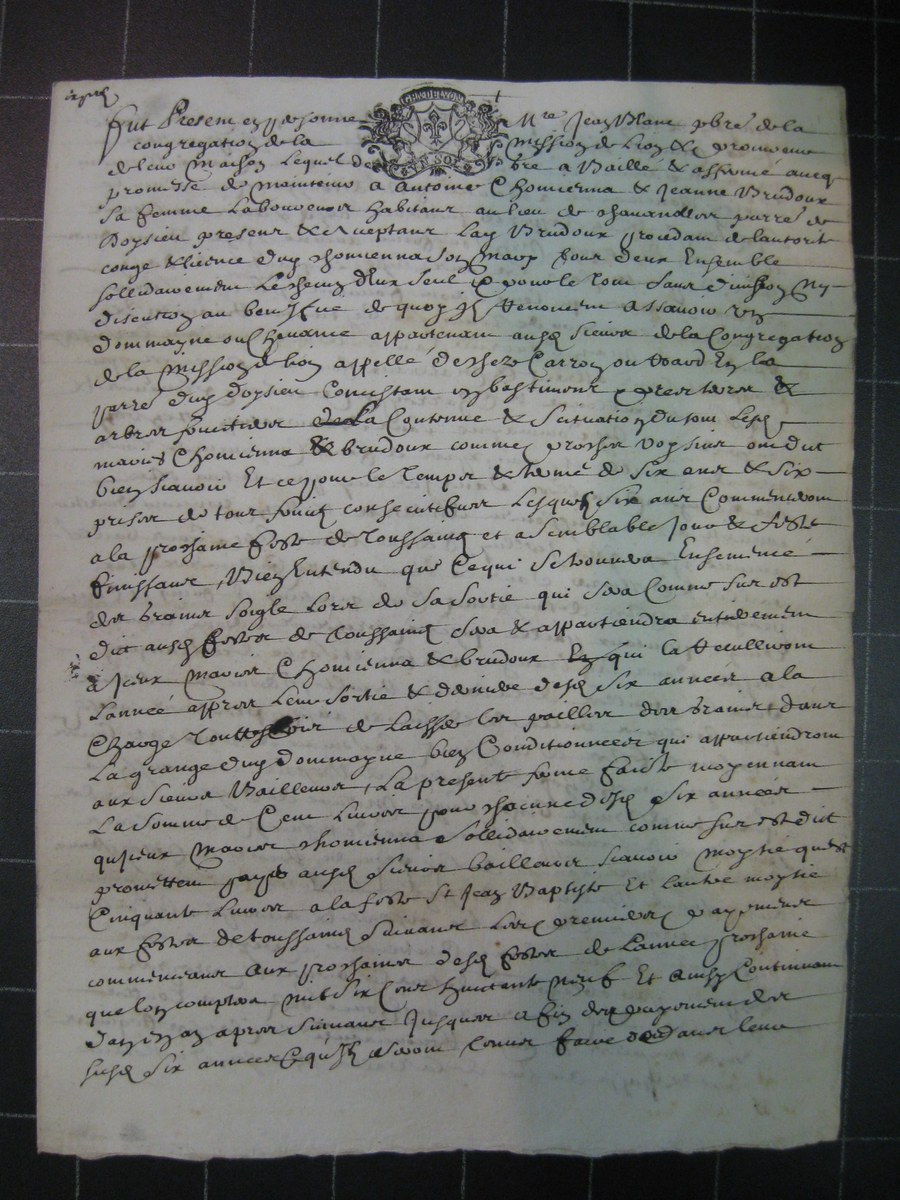 GEN. DE LYON
VN SOL
fut Present en personne Mre Jean Blanc pbre de la
congregation de la mission de Lion & procureur
de leur maison Lequel de gré a Baillé & affermé avecq
promesse de maintenir a Antoine Chomienna & Jeanne Brudoux
sa femme Laboureurs habitans au lieu de parre de
Doysieu presens & acceptans Lad Brudoux procedant de lautorité
congé & licence dud chomienna son mary tous deux Ensemble
sollidairement Lesheu deux seul & pour le tout sans division ny
discution au benefice de quoy ils Renoncent assavoir un
dommayne ou Chevance appartenant ausd sieurs de la Congregation
de la mission de Lion appellé de chez Carron ou en la
parre dud Doysieu Consistant en bastiment prés terres &
arbres fruitiers de La Contenue & scituation du tout Lesd
mariés Chomienna & brudoux comme proches voysins ont dit
bien scavoir Et ce pour le temps & terme de six ans & six
prises de tous fruits consecutifves Lesquels six ans Commenceront
a la prochaine feste de Toussaintz et a semblable jour & feste
finissans, Bien Entendu que Ce qui se trouvera Ensemencé
des grains soigle Lors de sa sortie qui sera Comme sur est
dit ausd festes de Toussaintz sera & appartiendra entierement
a iceux mariés Chomienna & brudoux En qui la Recullieront
Lannée appres Leur sortie & derniere desd six années a la
Charge touttefois de Laisser les pailles des grains dans
La grange dud dommayne bien Conditionnées qui appartiendront
aux sieurs Bailleurs, La presente ferme faitte moyennant
La somme de Cent Livres pour chacune desd six années
qu'iceux mariés chomienna sollidairement comme sur est dict
promettent payer ausd sieurs bailleurs scavoir moytié quest
Cinquante Livres a la feste St Jean Baptiste Et lautre moytié
aux festes de toussaintz suivans Les premiers payements
commenceans aux prochaines desd festes de Lannée prochaine
que lon comptera mil six Cens huictante neuf Et ainsy Continuant
dan en an apres suivans Jusques a fin des payements des
susd six années qu'ils seront tenus faire dans leur